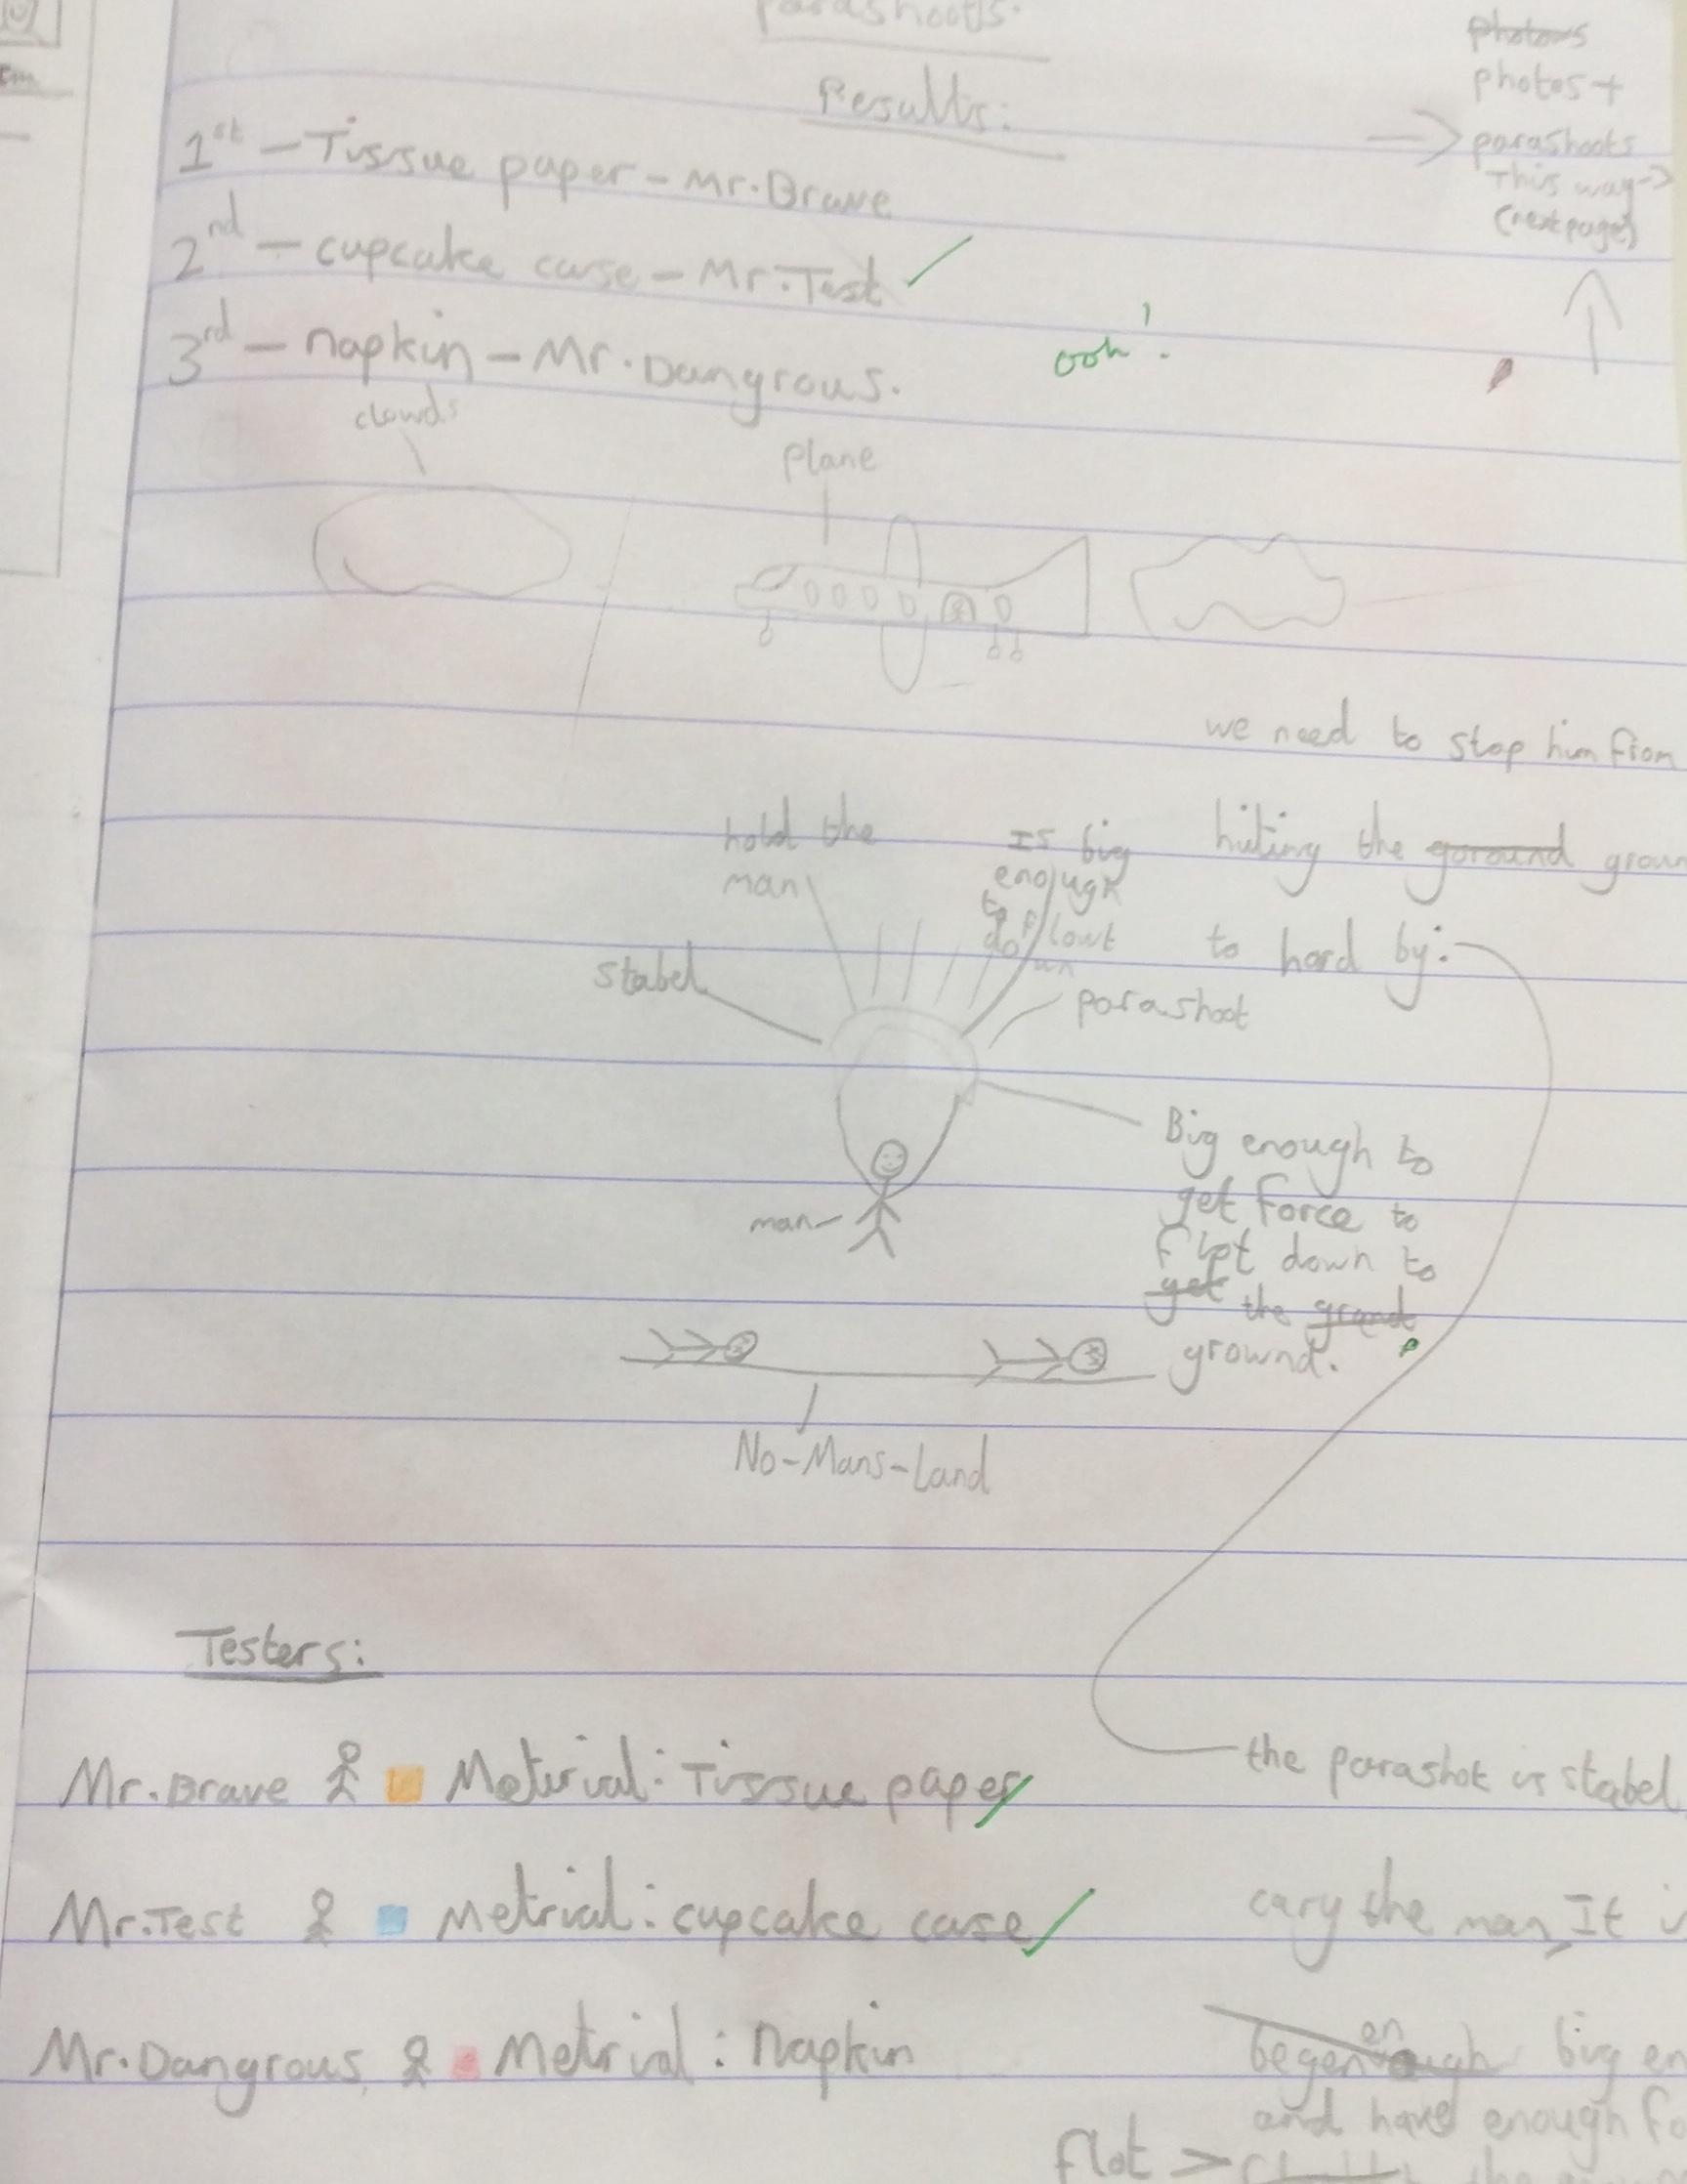 parashoots.
Results:
photows
photos +
parashoots
This way->
(next page)
1st - Tissue paper - Mr.Brave
2nd - cupcake case - Mr.Test
3rd - napkin - Mr.Dangrous.
ooh!
clowds
plane
we need to stop him from
hiting the goround groun
to hard by:
hold the
man
Is big
enough
to flowt
down
stabel
parashoot
Big enough to
get force to
flot down to
get the grand
grownd.
man
No-Mans-Land
Testers:
Mr.Brave Meterial: Tissue paper
the parashot is stabel
Mr.Test Metrial: cupcake case
cary the man, It
Mr.Dangrous Metrial: Napkin
en
big en
and have enough fo
flot >